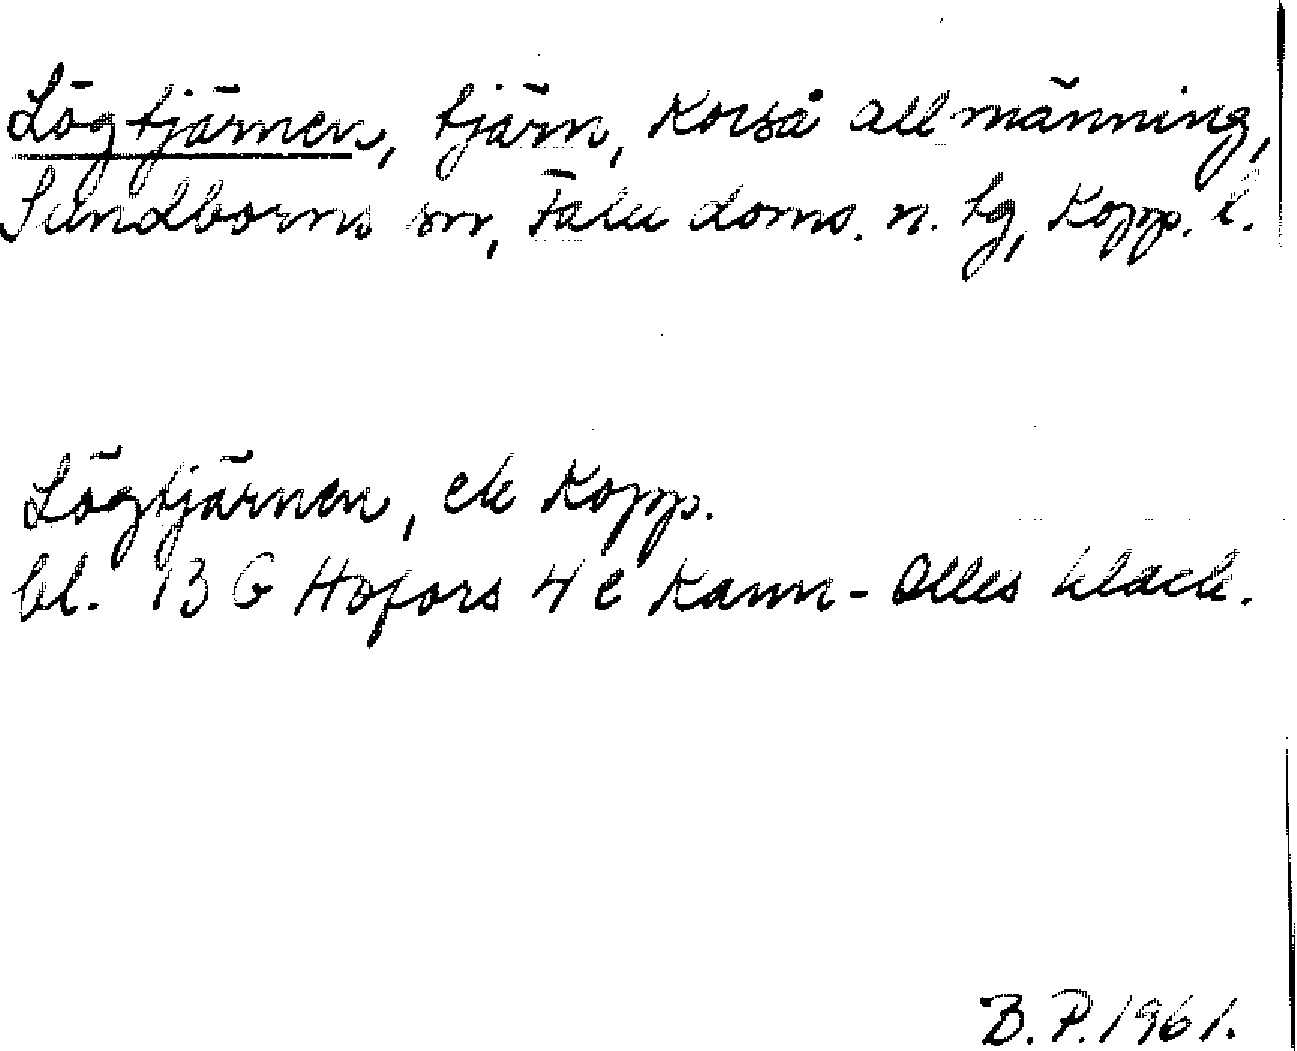 Lögtjärnen, tjärn, Korså allmänning,
Sundborns sn, Falu doms. n. tg, Kopp. l.
Lögtjärnen, ek Kopp.
bl. 13 G Hofors 4 e Kann-Olles klack.
B. P. 1961.